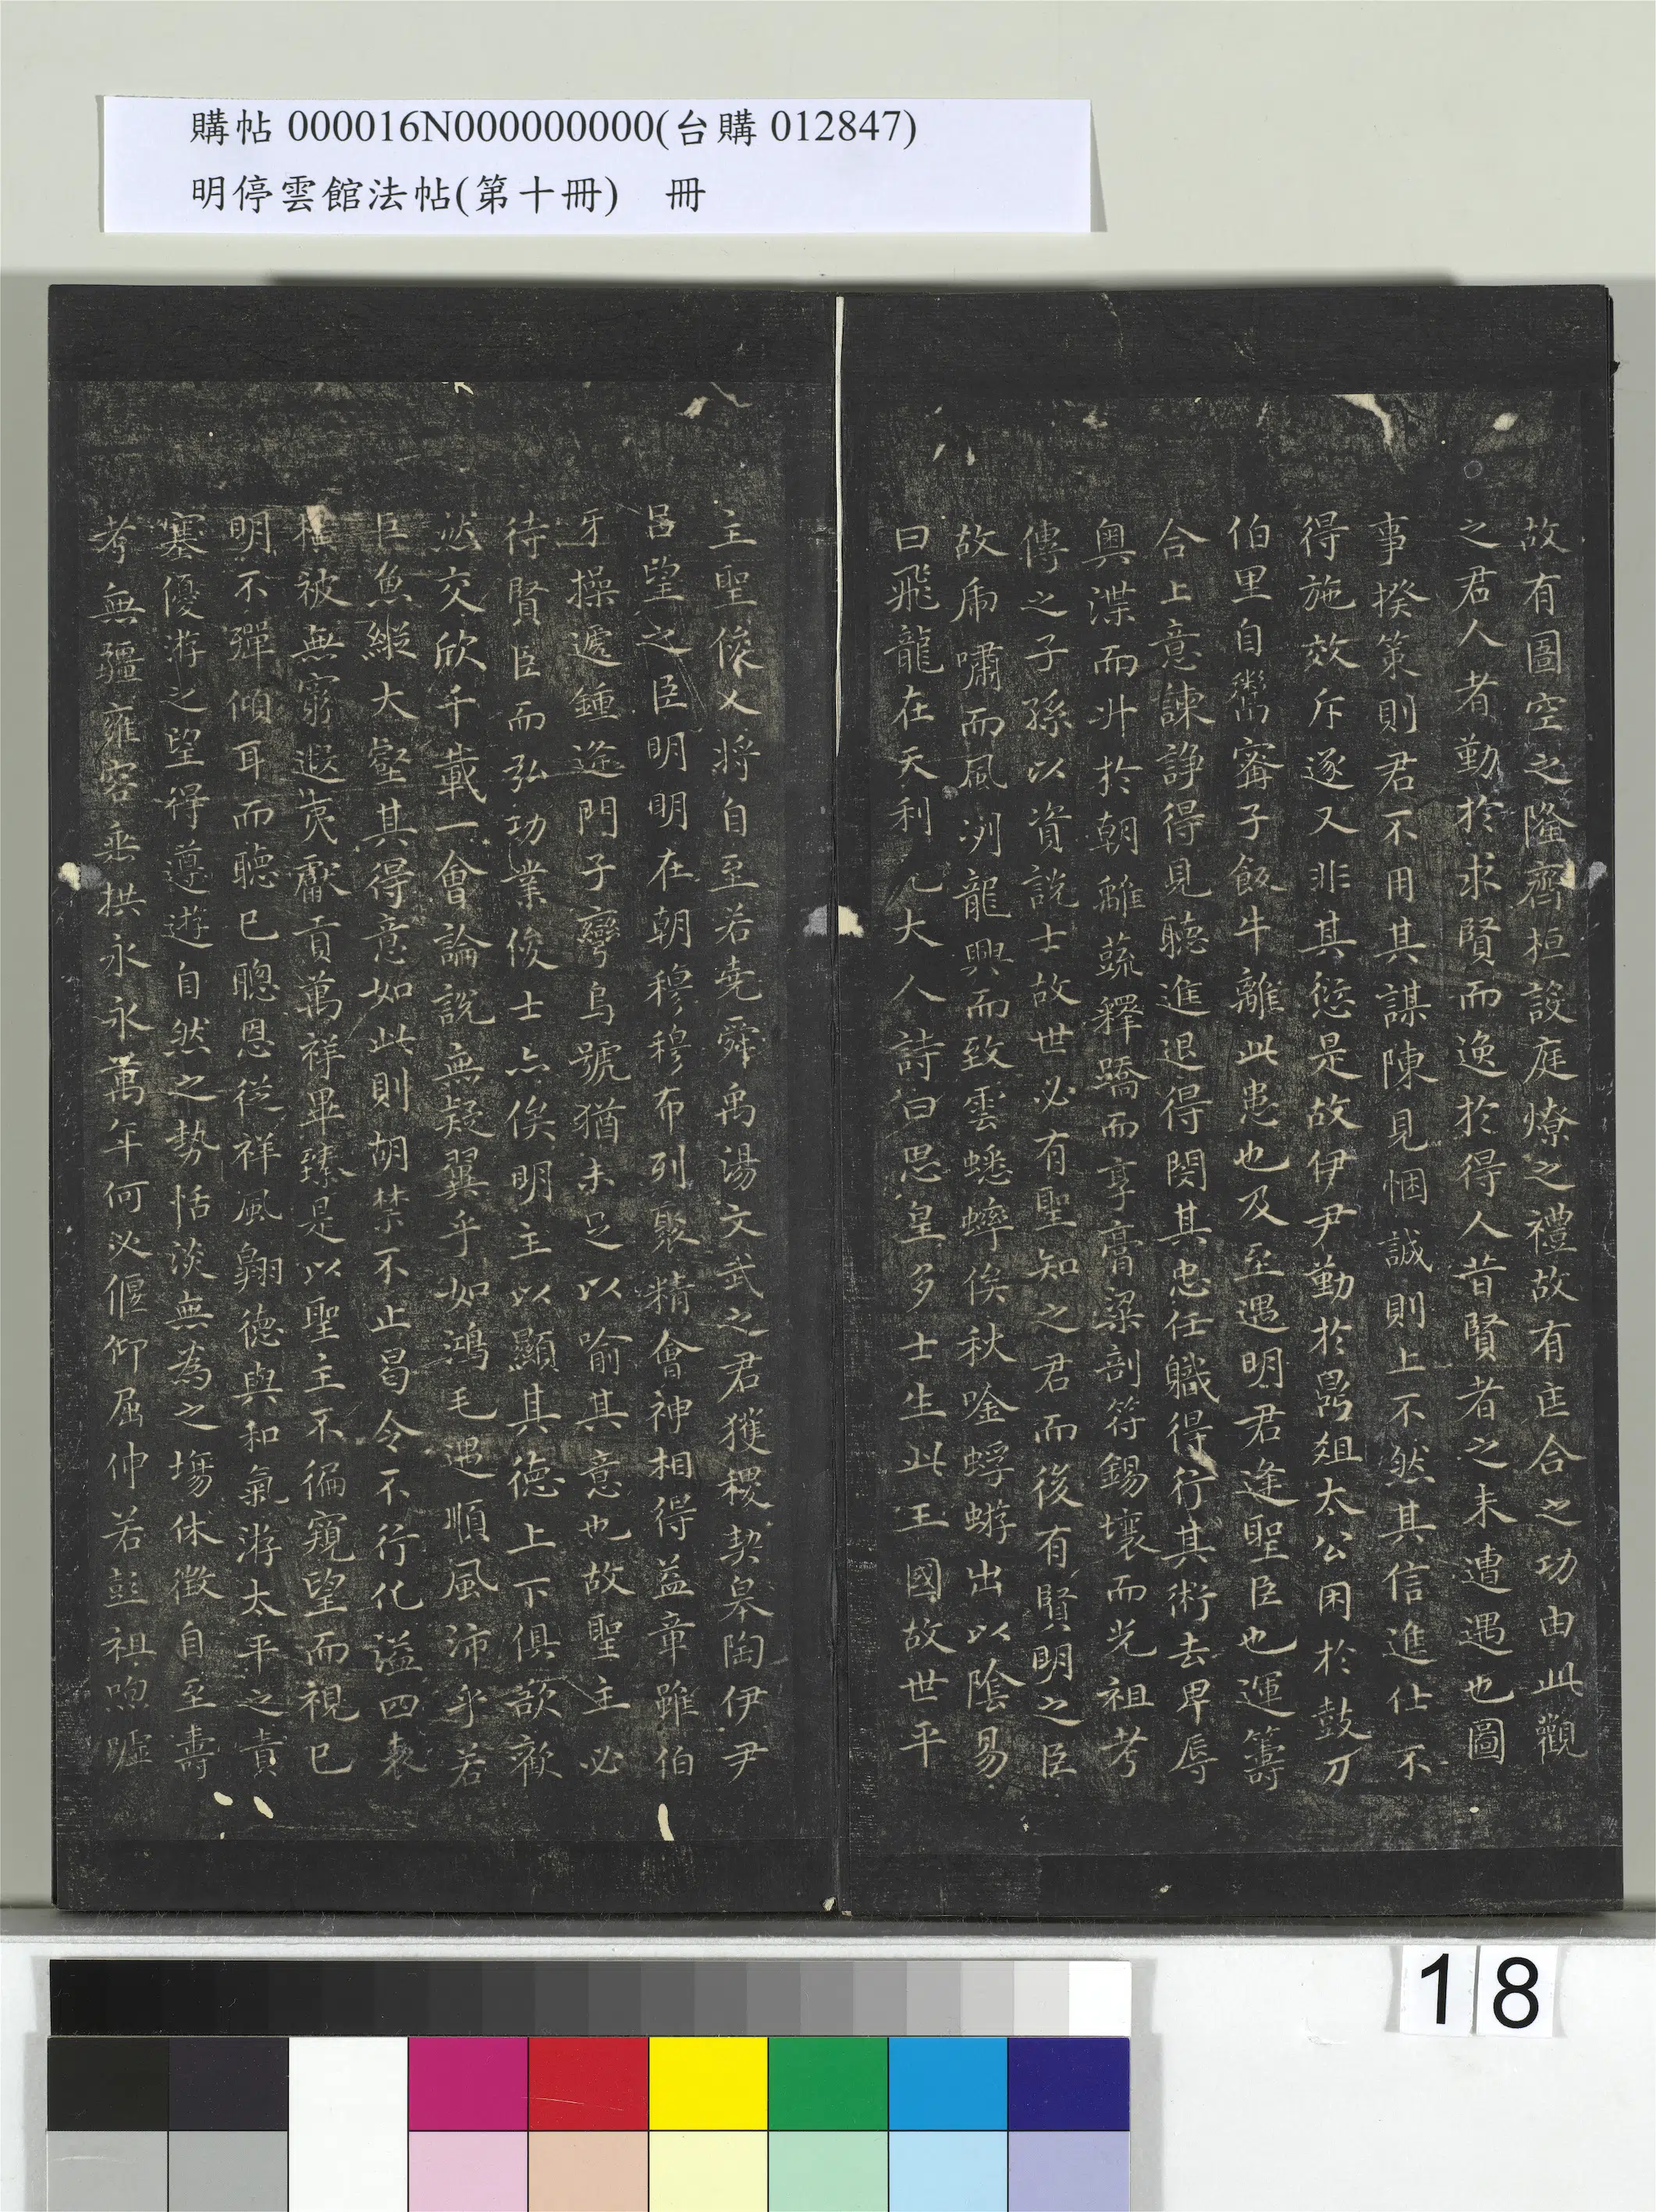 購帖 000016N000000000(台購 012847)
明停雲館法帖(第十冊) 冊
故有圄空之隆齊桓設庭燎之禮故有匡合之功由此觀
之君人者勤於求賢而逸於得人昔賢者之未遭遇也圖
事揆策則君不用其謀陳見悃誠則上不然其信進仕不
得施效斥逐又非其愆是故伊尹勤於鼎俎太公困於鼓刀
伯里自鬻甯子飯牛離此患也及至遇明君逢聖臣也運籌
合上意諫諍得見聽進退得関其忠任職得行其術去卑辱
奥渫而升於朝離蔬釋蹻而享膏粱剖符錫壤而光祖考
傳之子孫以資說士故世必有聖知之君而後有賢明之臣
故虎嘯而風冽龍興而致雲蟋蟀俟秋唫蜉蝣出以陰易
曰飛龍在天利見大人詩曰思皇多士生此王國故世平
主聖俊乂將自至若堯舜禹湯文武之君獲稷契皋陶伊尹
呂望之臣明明在朝穆穆布列聚精會神相得益章雖伯
牙操遞鍾逄門子彎烏號猶未足以喻其意也故聖主必
待賢臣而弘功業俊士亦俟明主以顯其德上下俱欲歡
然交欣千載一會論說無疑翼乎如鴻毛遇順風沛乎若
巨魚縱大壑其得意如此則胡禁不止曷令不行化溢四表
橫被無窮遐夷獻貢萬祥畢臻是以聖主不徧窺望而視已
明不殫傾耳而聽已聰恩從祥風翱德與和氣游太平之責
塞優游之望得遵遊自然之勢恬淡無為之塲休徵自至壽
考無疆雍容垂拱永永萬年何必偃仰屈伸若彭祖呴噓
18